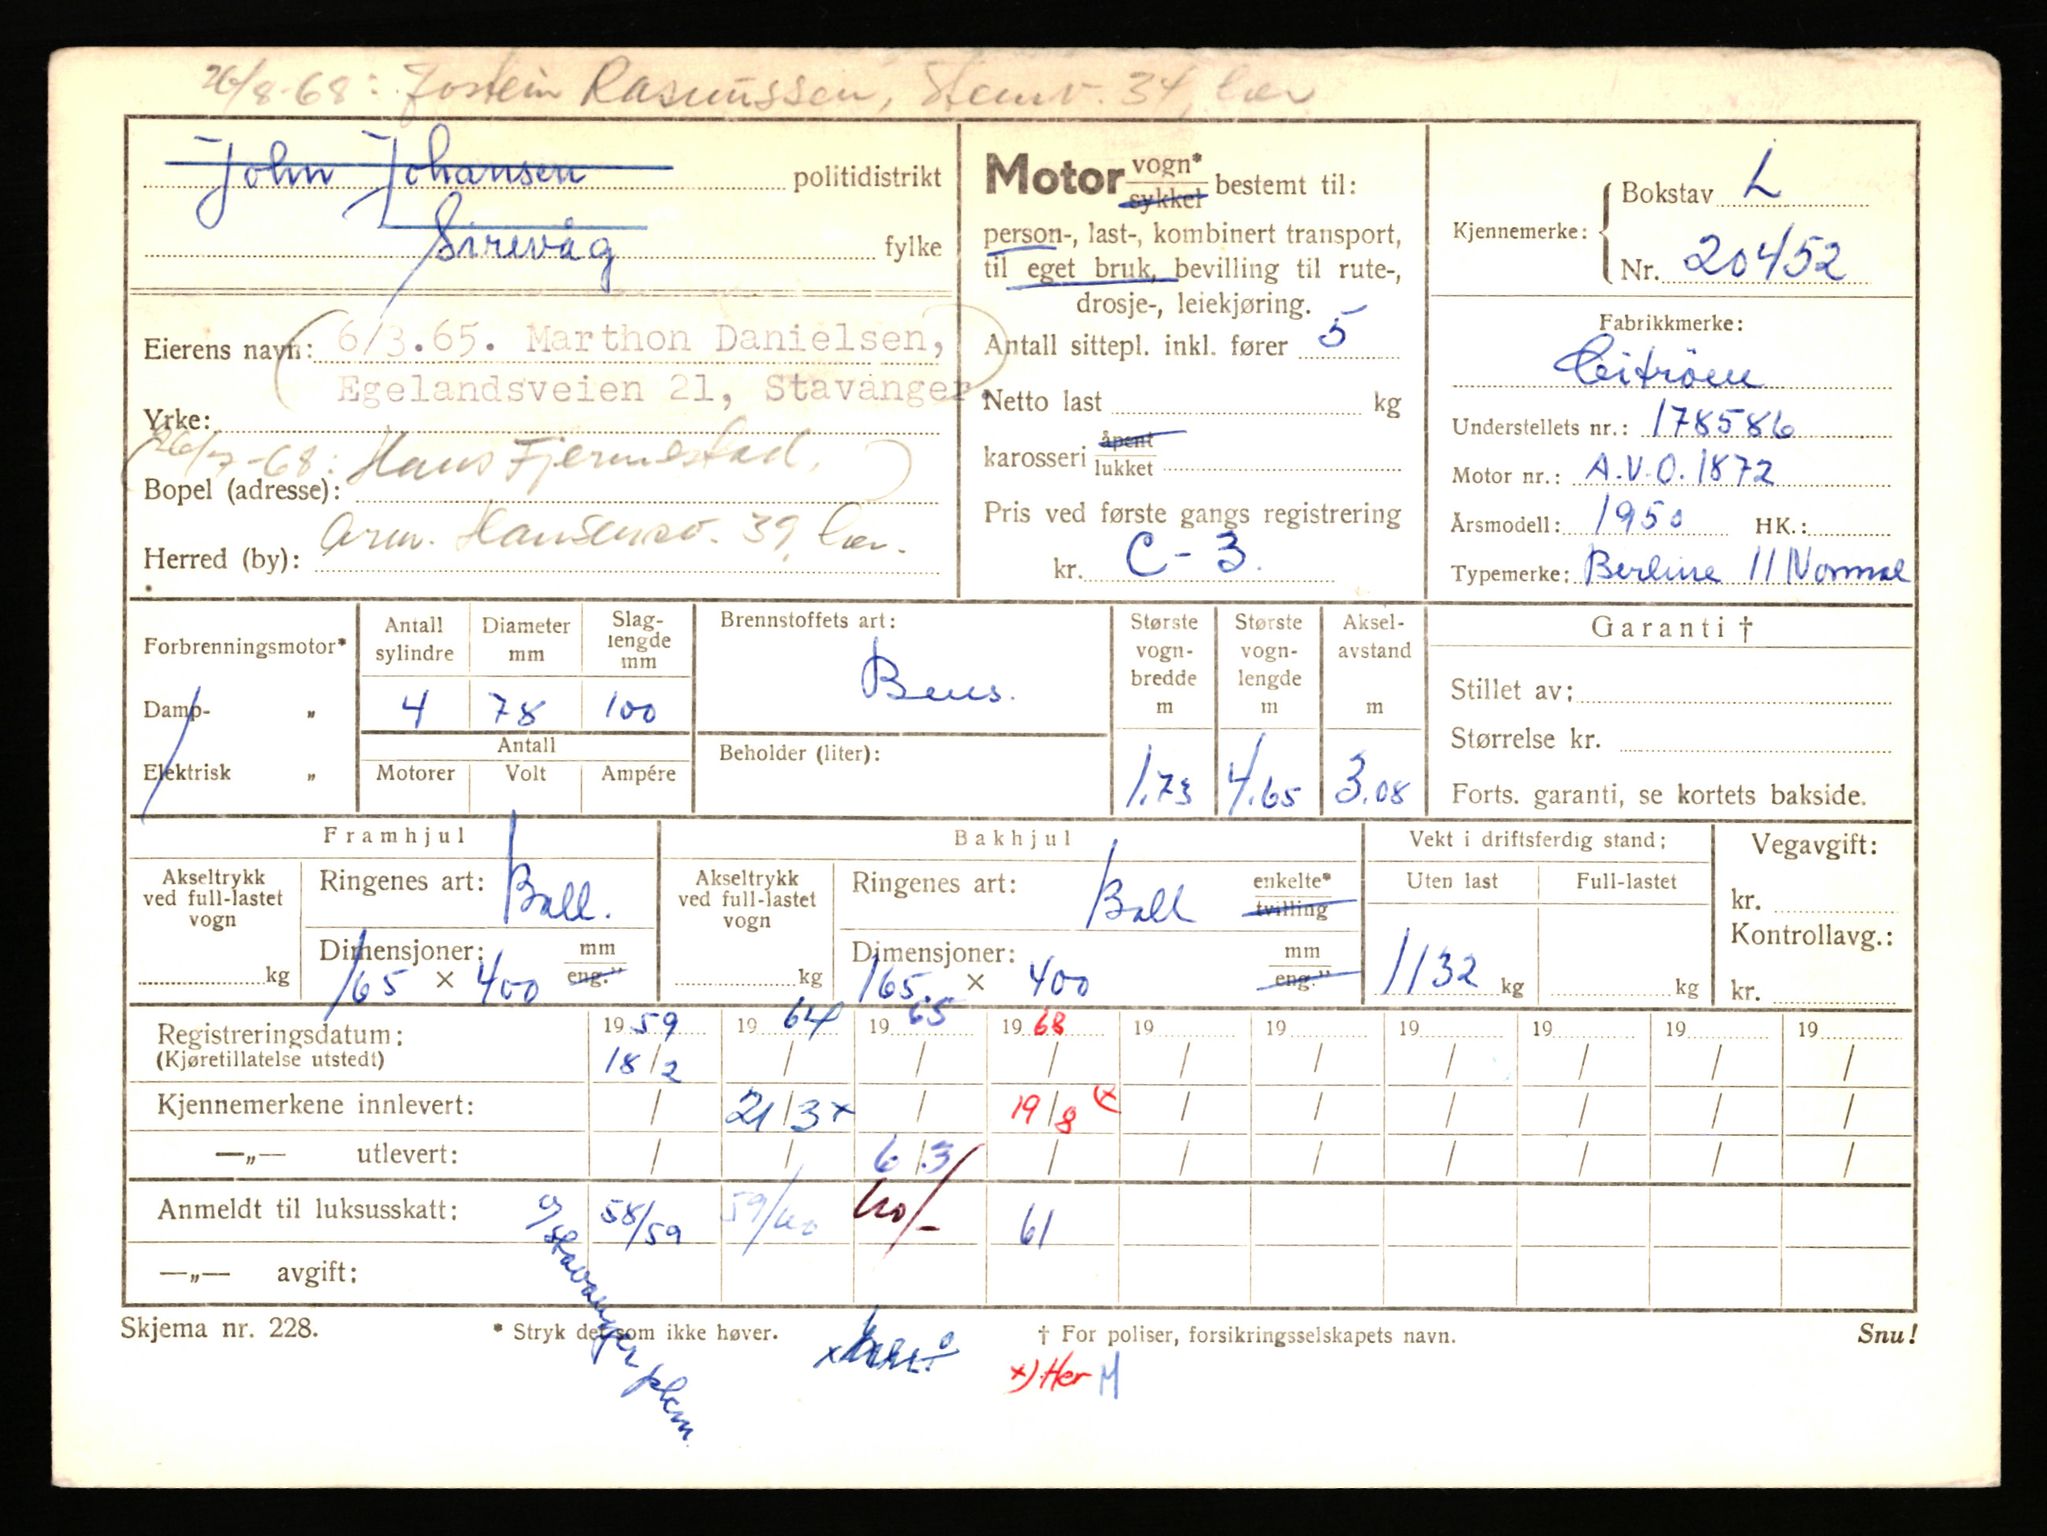 26/8-68: Jostein Rasmussen, Stemv. 34, her
John Johansen politidistrikt
Sirevåg fylke
Eierens navn: 6/3.65. Marthon Danielsen,
Egelandsveien 21, Stavanger.
Yrke:
26/7-68: Hans Fjermestad,
Bopel (adresse):
Arm. Hansensv. 39, her.
Herred (by):
Motor vogn* sykkel bestemt til:
person-, last-, kombinert transport,
til eget bruk, bevilling til rute-,
drosje-, leiekjøring.
Antall sittepl. inkl. fører 5
Netto last kg
karosseri åpent lukket
Pris ved første gangs registrering
kr. C-3.
Kjennemerke: Bokstav L
Nr. 20452
Fabrikkmerke:
Citröen
Understellets nr.: 178586
Motor nr.: A.V.O. 1872
Årsmodell: 1950 HK.:
Typemerke: Berline 11 Normal
Forbrenningsmotor*
Damp- „
Elektrisk „
Antall sylindre Diameter mm Slag-lengde mm
4 78 100
Antall
Motorer Volt Ampére
Brennstoffets art:
Bens.
Beholder (liter):
Største vogn-bredde m Største vogn-lengde m Aksel-avstand m
1.73 4.65 3.08
Garanti †
Stillet av:
Størrelse kr.
Forts. garanti, se kortets bakside.
Framhjul
Akseltrykk ved full-lastet vogn
kg
Ringenes art: Ball.
Dimensjoner: mm eng."
165 × 400
Bakhjul
Akseltrykk ved full-lastet vogn
kg
Ringenes art: Ball enkelte* tvilling
Dimensjoner: mm eng."
165. × 400
Vekt i driftsferdig stand:
Uten last Full-lastet
1132 kg kg
Vegavgift:
kr.
Kontrollavg.:
kr.
Registreringsdatum: 1959 1964 1965 1968 19 19 19 19 19 19
(Kjøretillatelse utstedt) 18/2 / / / / / / / / /
Kjennemerkene innlevert: / 21/3 x / 19/8 x) / / / / / /
—„— utlevert: / / 6/3 / / / / / / /
Anmeldt til luksusskatt: 58/59 59/60 60/- 61
—„— avgift:
o/ Stavanger pkm.
Skjema nr. 228.
* Stryk det som ikke høver.
† For poliser, forsikringsselskapets navn.
Snu!
x) Her M